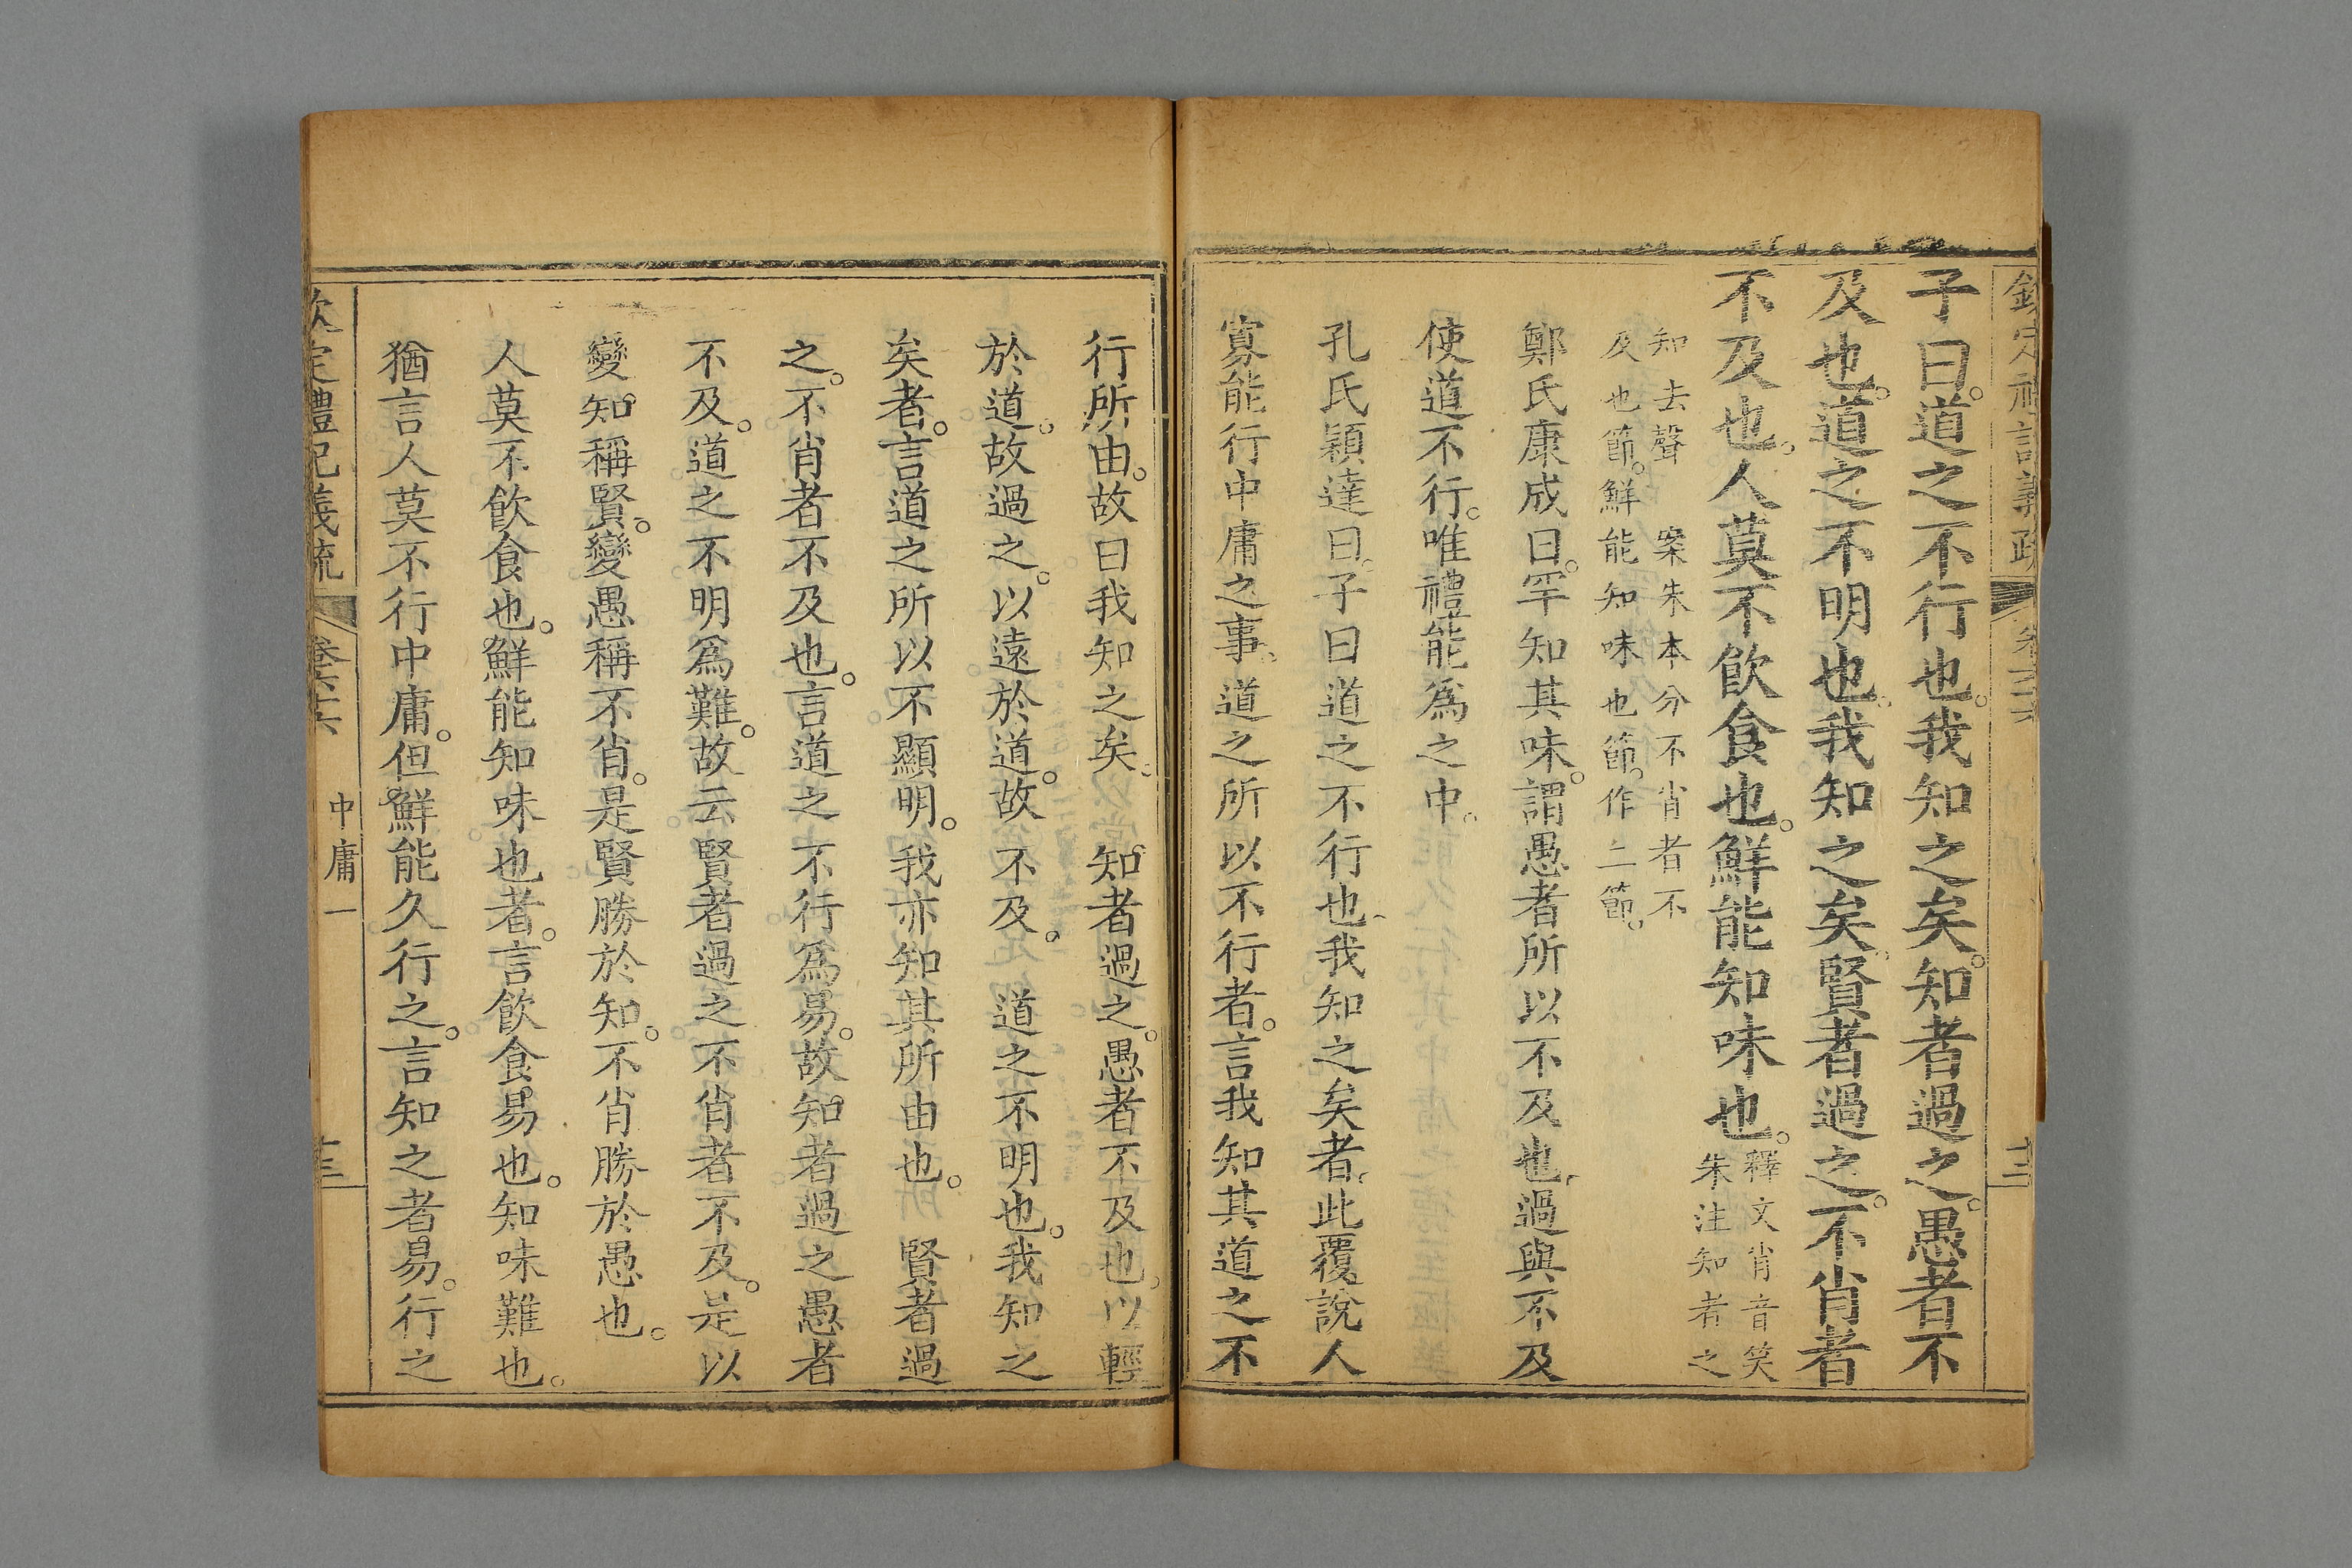 子曰。道之不行也。我知之矣。知者過之。愚者不
及也。道之不明也。我知之矣。賢者過之。不肖者
不及也。人莫不飲食也。鮮能知味也。釋文肖音笑
朱注知者之
知去聲 案朱本分不肖者不
及也節。鮮能知味也節。作二節。
鄭氏康成曰。罕知其味。謂愚者所以不及也。過與不及
使道不行。唯禮能爲之中。
孔氏穎達曰。子曰道之不行也。我知之矣者。此覆說人
寡能行中庸之事。道之所以不行者。言我知其道之不
行所由。故曰我知之矣。 知者過之。愚者不及也。以輕
於道。故過之。以遠於道。故不及。 道之不明也。我知之
矣者。言道之所以不顯明。我亦知其所由也。 賢者過
之。不肖者不及也。言道之不行爲易。故知者過之愚者
不及。道之不明爲難。故云賢者過之不肖者不及。是以
變知稱賢。變愚稱不肖。是賢勝於知。不肖勝於愚也。
人莫不飲食也。鮮能知味也者。言飲食易也。知味難也。
猶言人莫不行中庸。但鮮能久行之。言知之者易。行之
中庸一